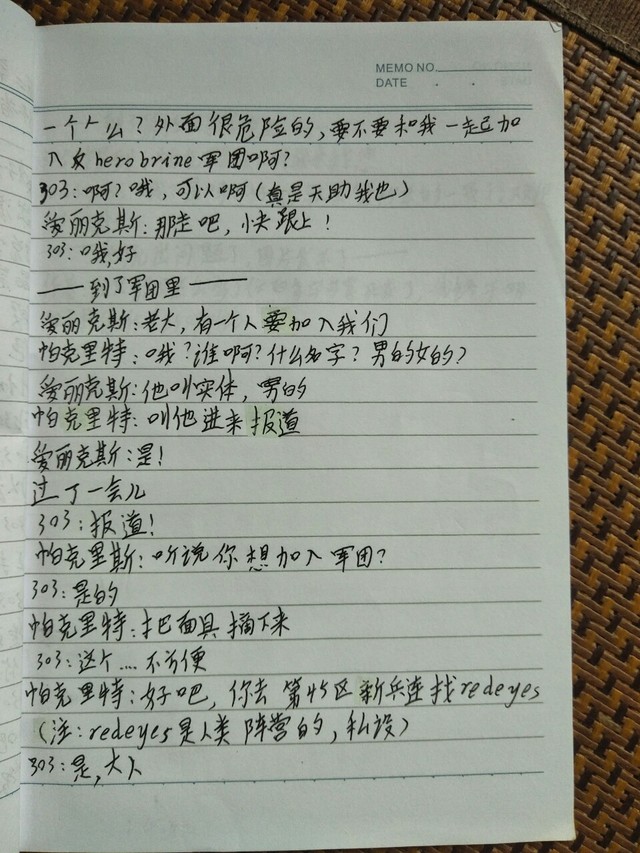 MEMO NO.
DATE . .
一个人么？外面很危险的，要不要和我一起加
入反herobrine军团啊？
303：啊？哦，可以啊（真是天助我也）
爱丽克斯：那走吧，快跟上！
303：哦，好
——到了军团里——
爱丽克斯：老大，有一个人要加入我们
帕克里特：哦？谁啊？什么名字？男的女的？
爱丽克斯：他叫实体，男的
帕克里特：叫他进来报道
爱丽克斯：是！
过了一会儿
303：报道！
帕克里斯：听说你想加入军团？
303：是的
帕克里特：把面具摘下来
303：这个....不方便
帕克里特：好吧，你去第45区新兵连找redeyes
（注：redeyes是人类阵营的，私设）
303：是，大人